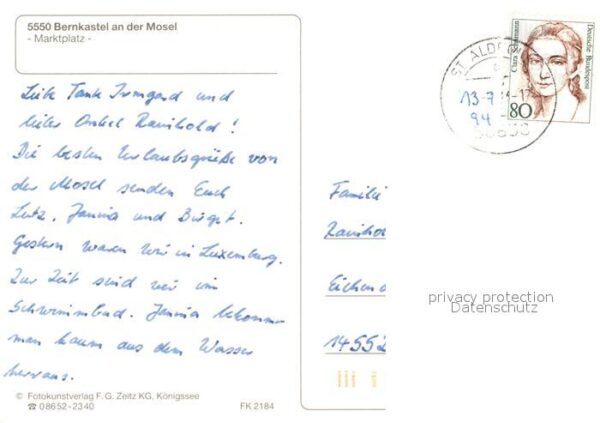 5550 Bernkastel an der Mosel
- Marktplatz -
Liebe Tante Irmgard und
lieber Onkel Reinhold!
Die besten Urlaubsgrüße von
der Mosel senden Euch
Lutz, Janina und Birgit.
Gestern waren wir in Luxemburg.
Zur Zeit sind wir im
Schwimmbad. Janina bekommt
man kaum aus dem Wasser
heraus.
© Fotokunstverlag F. G. Zeitz KG, Königssee
☎ 08652-2340
FK 2184
ST. ALDEG
13-7
94
Deutsche Bundespost
80
Familie
Reinhold
Eichend
14552
privacy protection
Datenschutz